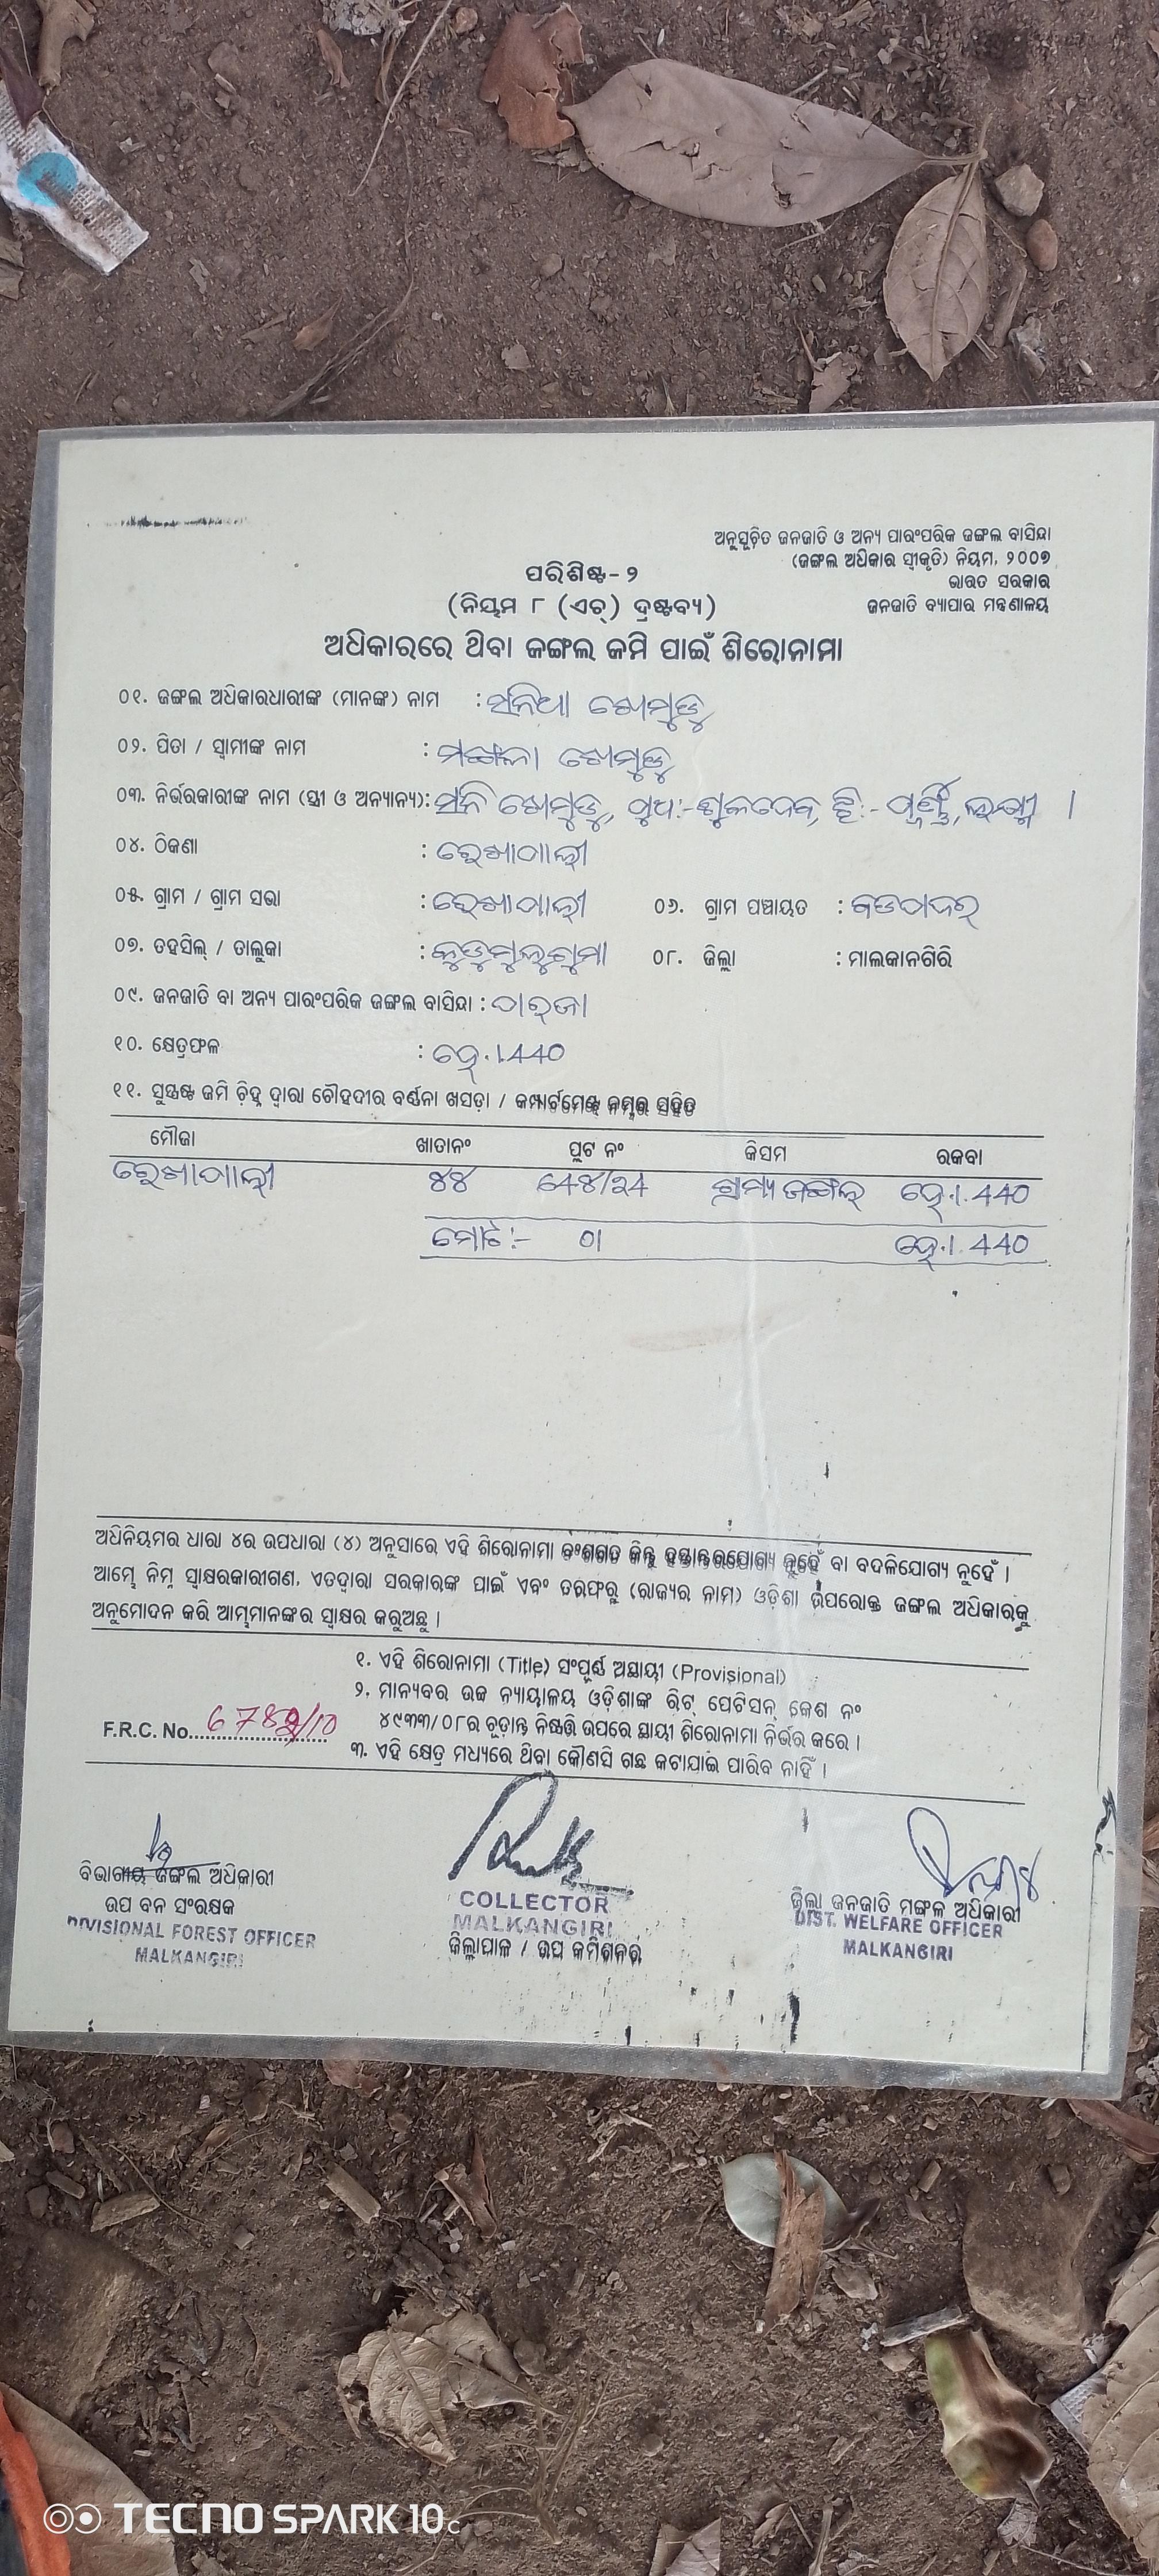 ଅନୁସୂଚିତ ଜନଜାତି ଓ ଅନ୍ୟ ପାରଂପରିକ ଜଙ୍ଗଲ ବାସିନ୍ଦା
(ଜଙ୍ଗଲ ଅଧିକାର ସ୍ୱୀକୃତି) ନିୟମ, ୨୦୦୭
ଭାରତ ସରକାର
ଜନଜାତି ବ୍ୟାପାର ମନ୍ତ୍ରଣାଳୟ
ପରିଶିଷ୍ଟ-୨
(ନିୟମ ୮ (ଏଚ୍) ଦ୍ରଷ୍ଟବ୍ୟ)
ଅଧିକାରରେ ଥିବା ଜଙ୍ଗଲ ଜମି ପାଇଁ ଶିରୋନାମା
୦୧. ଜଙ୍ଗଲ ଅଧିକାରଧାରୀଙ୍କ (ମାନଙ୍କ) ନାମ : ସନିଆ ଖେମୁଡୁ
୦୨. ପିତା / ସ୍ୱାମୀଙ୍କ ନାମ : ମଙ୍ଗଳା ଖେମୁଡୁ
୦୩. ନିର୍ଭରକାରୀଙ୍କ ନାମ (ସ୍ତ୍ରୀ ଓ ଅନ୍ୟାନ୍ୟ): ସନି ଖେମୁଡୁ, ପୁଅ:-ଶୁକଦେବ, ଝି:- ପୂର୍ଣ୍ଣମୀ, ଲକ୍ଷ୍ମୀ ।
୦୪. ଠିକଣା : ରେଖାପାଲ୍ଲୀ
୦୫. ଗ୍ରାମ / ଗ୍ରାମ ସଭା : ରେଖାପାଲ୍ଲୀ ୦୬. ଗ୍ରାମ ପଞ୍ଚାୟତ : ବଡପଦର୍
୦୭. ତହସିଲ୍ / ତାଲୁକା : କୁଡୁମୁଲୁଗୁମା ୦୮. ଜିଲ୍ଲା : ମାଲକାନଗିରି
୦୯. ଜନଜାତି ବା ଅନ୍ୟ ପାରଂପରିକ ଜଙ୍ଗଲ ବାସିନ୍ଦା : ପାର୍‌ଜା
୧୦. କ୍ଷେତ୍ରଫଳ : ହେ.1.440
୧୧. ସୁସ୍ପଷ୍ଟ ଜମି ଚିହ୍ନ ଦ୍ୱାରା ଚୌହଦୀର ବର୍ଣ୍ଣନା ଖସଡ଼ା / କମ୍ପାର୍ଟମେଣ୍ଟ ନମ୍ବର ସହିତ
ମୌଜା ଖାତାନଂ ପ୍ଲଟ ନଂ କିସମ ରକବା
ରେଖାପାଲ୍ଲୀ ୪୪ ଗ୍ରାମ୍ୟ ଜଙ୍ଗଲ୍ ହେ.1.440
ମୋଟ:- ୦୧ ହେ.1.440
ଅଧିନିୟମର ଧାରା ୪ର ଉପଧାରା (୪) ଅନୁସାରେ ଏହି ଶିରୋନାମା ବଂଶଗତ କିନ୍ତୁ ହସ୍ତାନ୍ତରଯୋଗ୍ୟ ନୁହେଁ ବା ବଦଳିଯୋଗ୍ୟ ନୁହେଁ ।
ଆମ୍ଭେ ନିମ୍ନ ସ୍ୱାକ୍ଷରକାରୀଗଣ, ଏତଦ୍ୱାରା ସରକାରଙ୍କ ପାଇଁ ଏବଂ ତରଫରୁ (ରାଜ୍ୟର ନାମ) ଓଡ଼ିଶା ଉପରୋକ୍ତ ଜଙ୍ଗଲ ଅଧିକାରକୁ
ଅନୁମୋଦନ କରି ଆମ୍ଭମାନଙ୍କର ସ୍ୱାକ୍ଷର କରୁଅଛୁ ।
୧. ଏହି ଶିରୋନାମା (Title) ସଂପୂର୍ଣ୍ଣ ଅସ୍ଥାୟୀ (Provisional)
୨. ମାନ୍ୟବର ଉଚ୍ଚ ନ୍ୟାୟାଳୟ ଓଡ଼ିଶାଙ୍କ ରିଟ୍ ପେଟିସନ୍ କେଶ ନଂ
୪୯୩୩/୦୮ର ଚୂଡ଼ାନ୍ତ ନିଷ୍ପତ୍ତି ଉପରେ ସ୍ଥାୟୀ ଶିରୋନାମା ନିର୍ଭର କରେ ।
୩. ଏହି କ୍ଷେତ୍ର ମଧ୍ୟରେ ଥିବା କୌଣସି ଗଛ କଟାଯାଇ ପାରିବ ନାହିଁ ।
F.R.C. No.
ବିଭାଗୀୟ ଜଙ୍ଗଲ ଅଧିକାରୀ
ଉପ ବନ ସଂରକ୍ଷକ
DIVISIONAL FOREST OFFICER
MALKANGIRI
COLLECTOR
MALKANGIRI
ଜିଲ୍ଲାପାଳ / ଉପ କମିଶନର
ଜିଲ୍ଲା ଜନଜାତି ମଙ୍ଗଳ ଅଧିକାରୀ
DIST. WELFARE OFFICER
MALKANGIRI
TECNO SPARK 10c